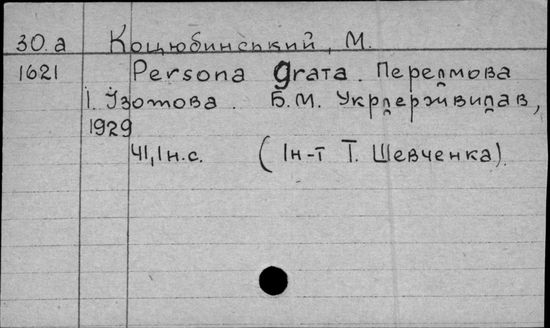 30.а Коцюбинський, М.
1621 Persona grата. Передмова
І. Ізотова. Б.М. Укрдержвидав,
1929
41,1н.с. (Ін-т Т. Шевченка).